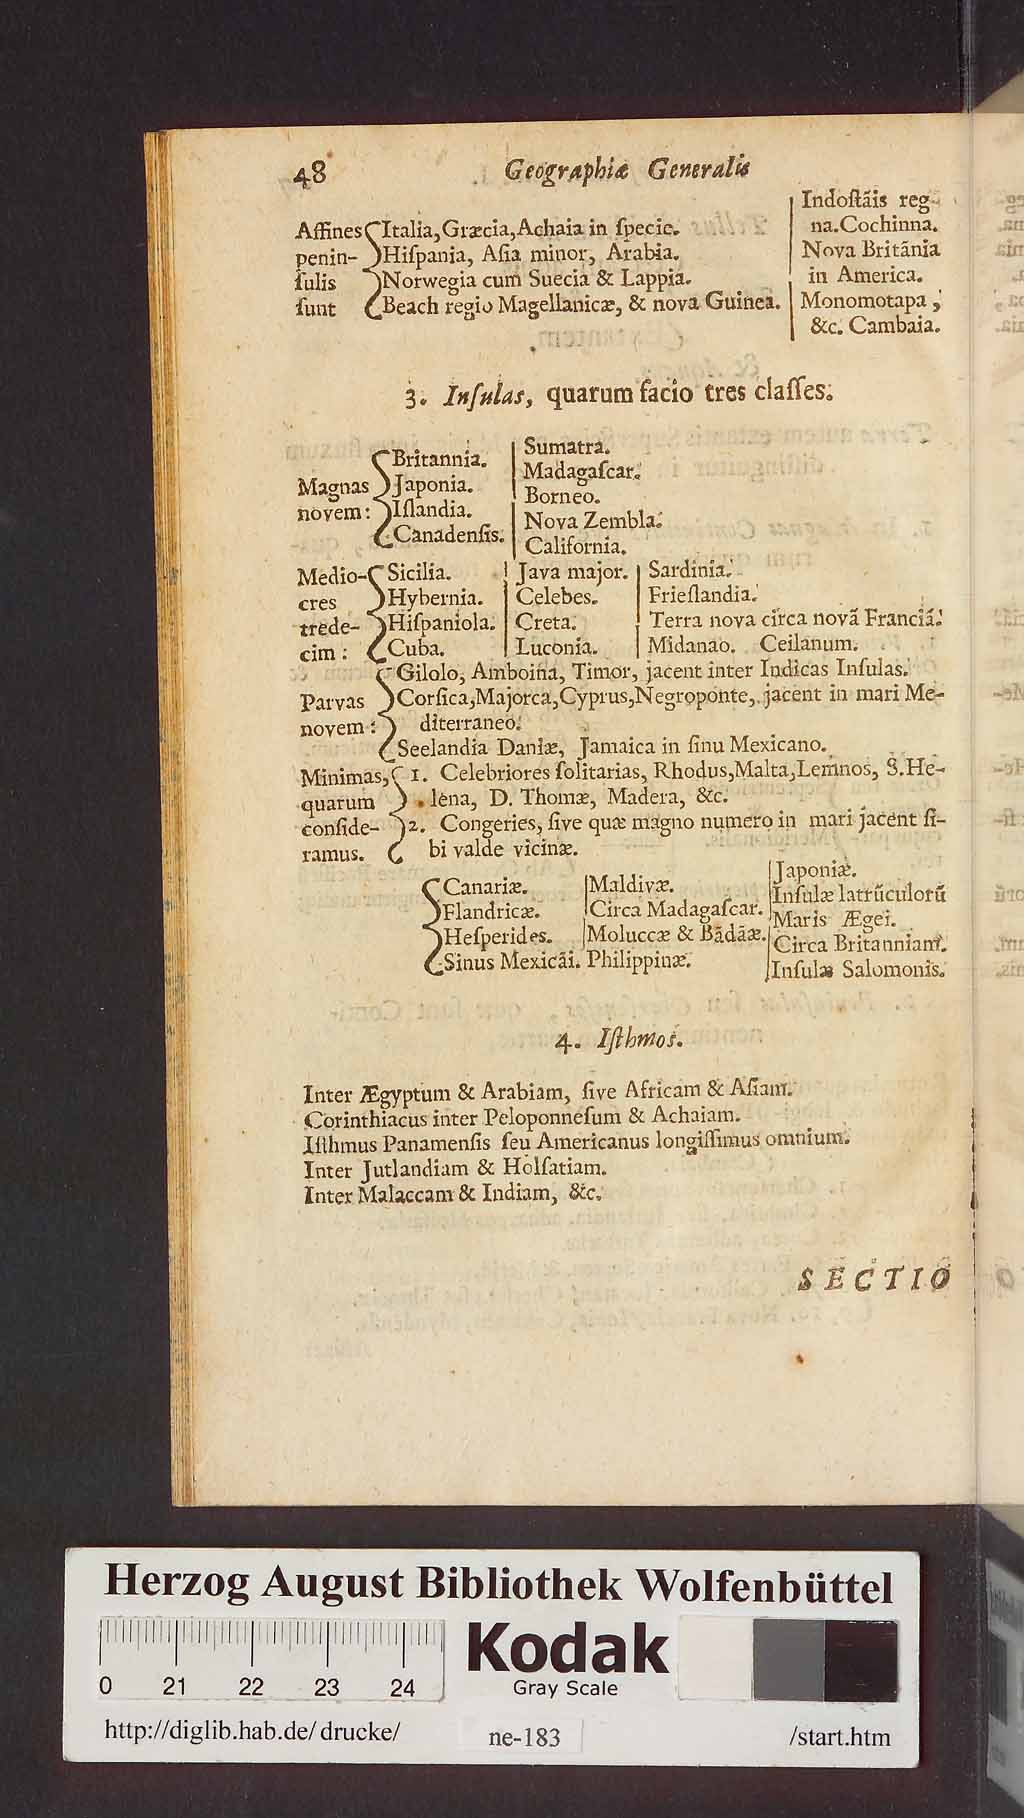 48 Geographiæ Generalis
Affines Italia, Græcia, Achaia in ſpecie.
penin- Hiſpania, Aſia minor, Arabia.
ſulis Norwegia cum Suecia & Lappia.
ſunt Beach regio Magellanicæ, & nova Guinea.
Indoſtãis reg-
na. Cochinna.
Nova Britãnia
in America.
Monomotapa,
&c. Cambaia.
3. Inſulas, quarum facio tres claſſes.
Magnas
novem:
Britannia.
Japonia.
Iſlandia.
Canadenſis.
Sumatra.
Madagaſcar.
Borneo.
Nova Zembla.
California.
Medio-
cres
trede-
cim:
Sicilia. Java major. Sardinia.
Hybernia. Celebes. Frieſlandia.
Hiſpaniola. Creta. Terra nova circa novã Franciã.
Cuba. Luconia. Midanao. Ceilanum.
Parvas
novem:
Gilolo, Amboina, Timor, jacent inter Indicas Inſulas.
Corſica, Majorca, Cyprus, Negroponte, jacent in mari Me-
diterraneo.
Seelandia Daniæ, Jamaica in ſinu Mexicano.
Minimas,
quarum
conſide-
ramus.
1. Celebriores ſolitarias, Rhodus, Malta, Lemnos, S. He-
lena, D. Thomæ, Madera, &c.
2. Congeries, ſive quæ magno numero in mari jacent ſi-
bi valde vicinæ.
Canariæ.
Flandricæ.
Heſperides.
Sinus Mexicãi.
Maldivæ.
Circa Madagaſcar.
Moluccæ & Bãdãæ.
Philippinæ.
Japoniæ.
Inſulæ latrũculorũ
Maris Ægei.
Circa Britanniam.
Inſulæ Salomonis.
4. Iſthmos.
Inter Ægyptum & Arabiam, ſive Africam & Aſiam.
Corinthiacus inter Peloponneſum & Achaiam.
Iſthmus Panamenſis ſeu Americanus longiſſimus omnium.
Inter Jutlandiam & Holſatiam.
Inter Malaccam & Indiam, &c.
SECTIO
Herzog August Bibliothek Wolfenbüttel
0 21 22 23 24
Kodak
Gray Scale
http://diglib.hab.de/drucke/ ne-183 /start.htm